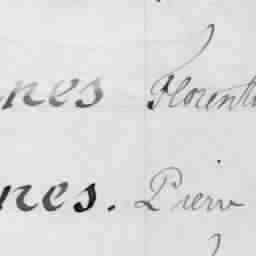 nes Florent
nes. Pierre